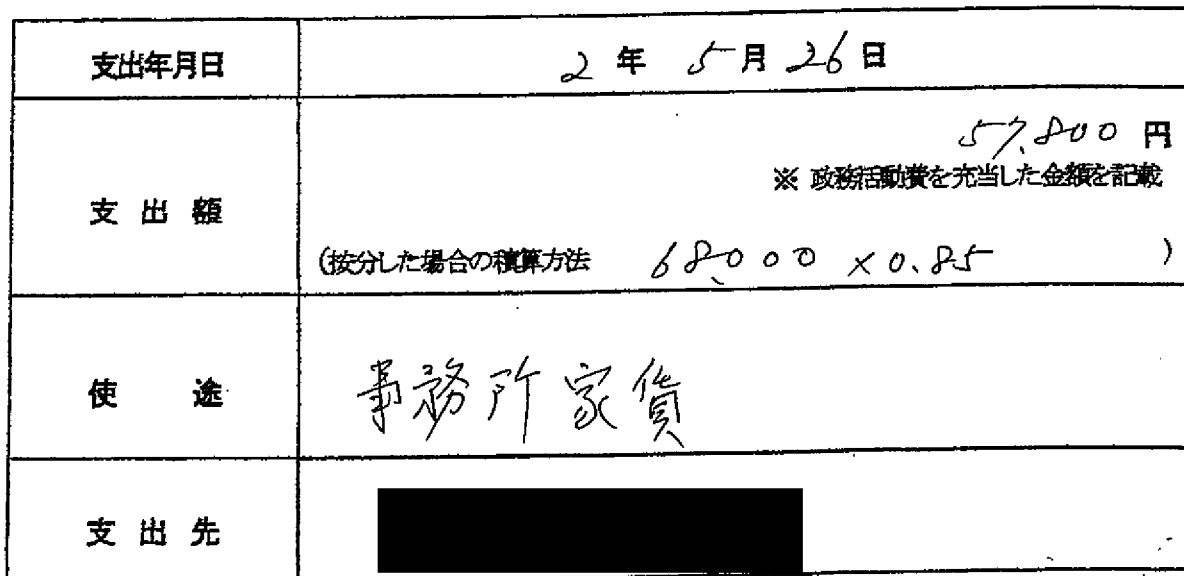 支出年月日 2年5月26日
57,800円
※ 政務活動費を充当した金額を記載
支出額
(按分した場合の積算方法 68,000×0.85 )
使途 事務所家賃
支出先